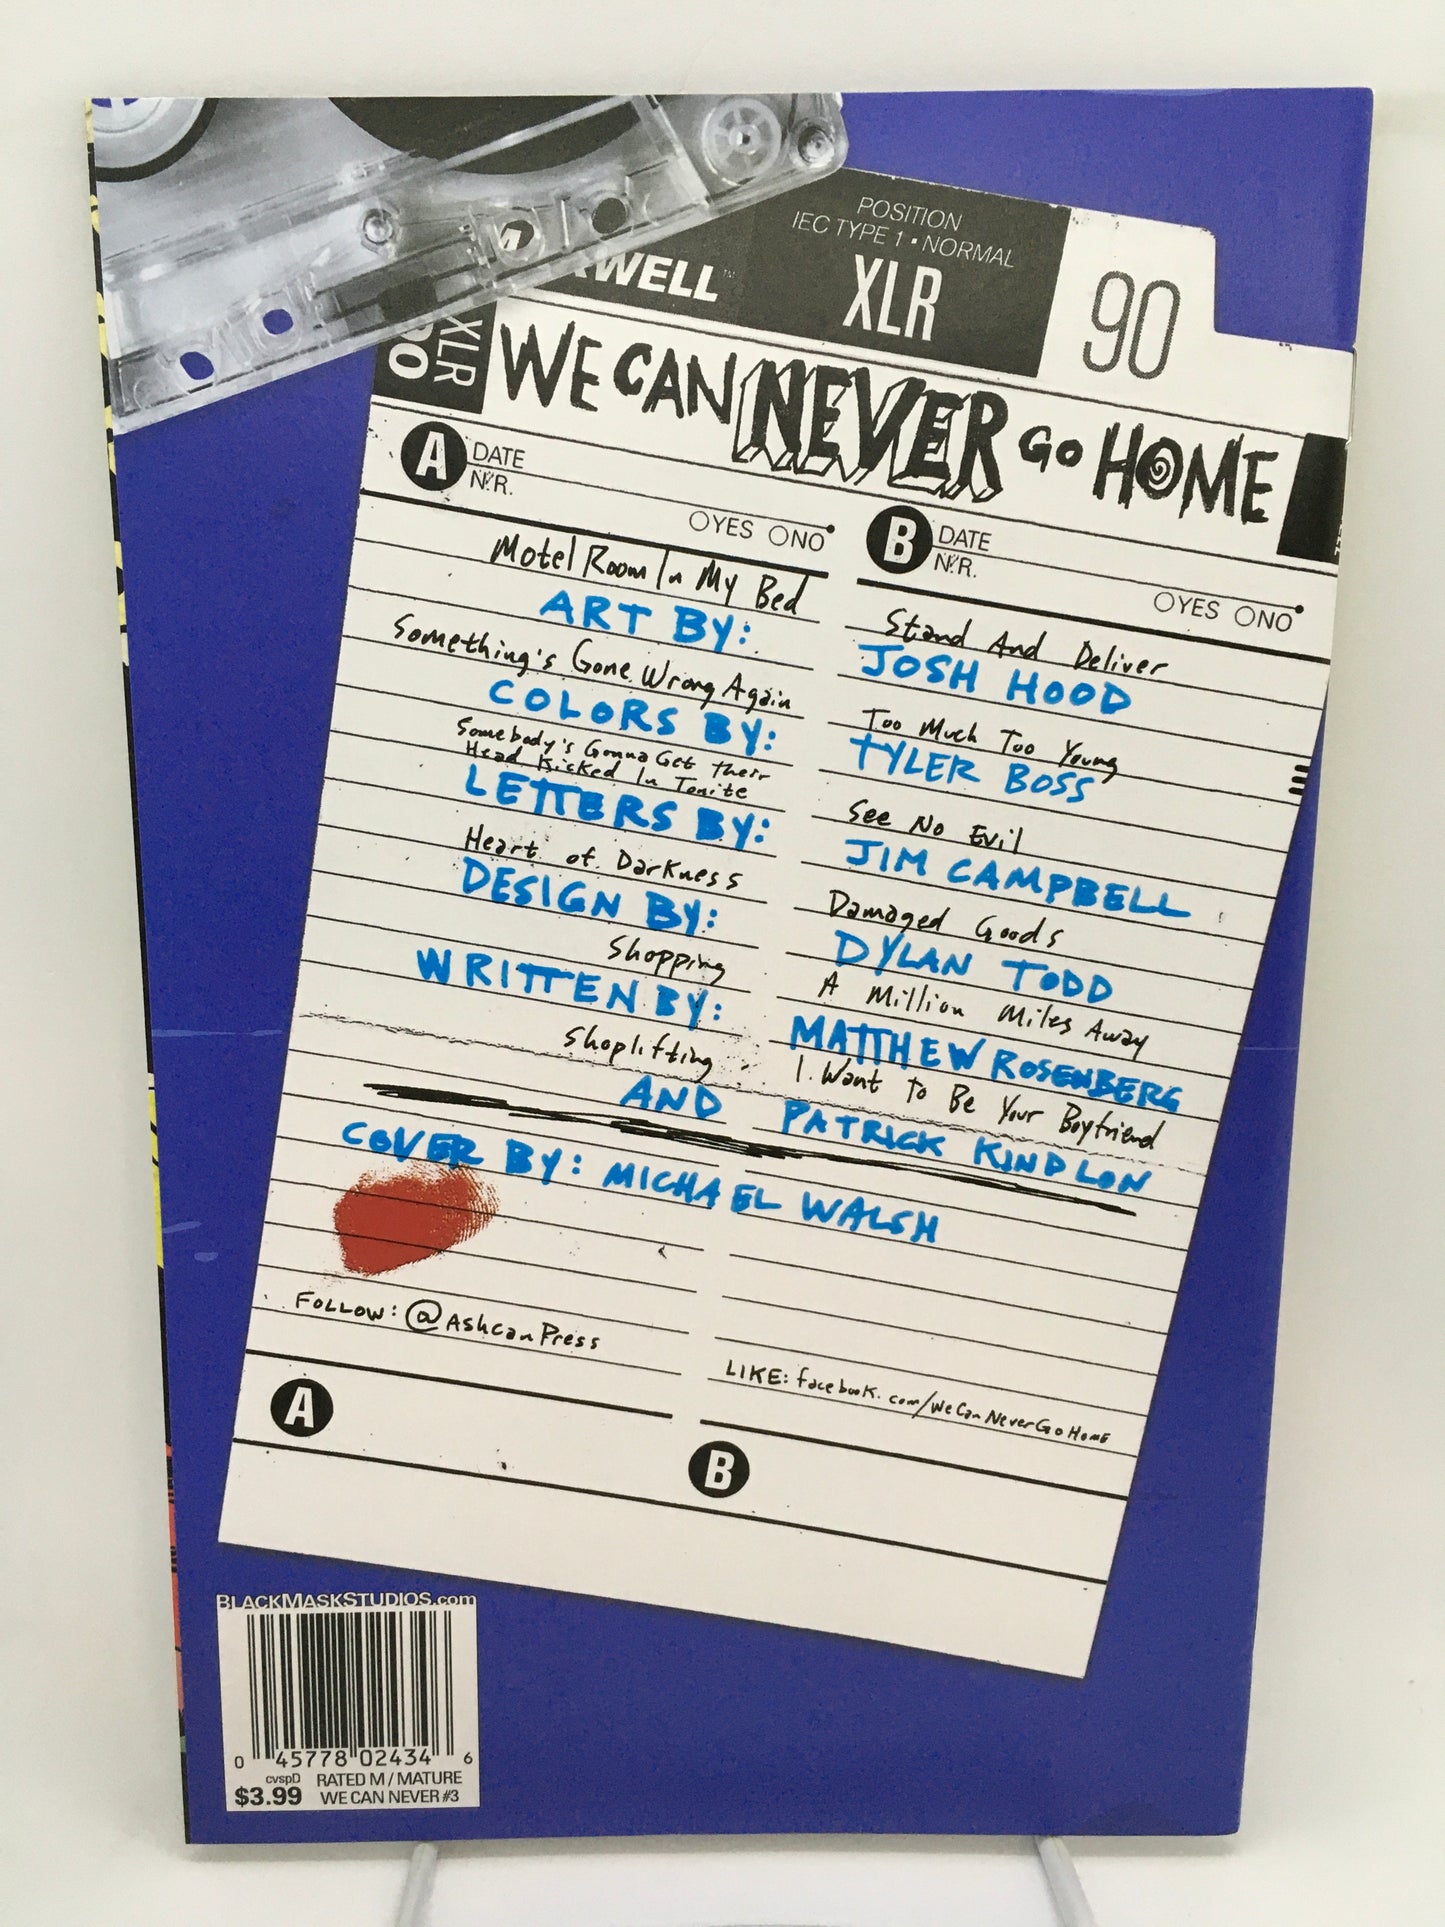 POSITION
IEC TYPE 1 • NORMAL
WELL™
XLR
90
XLR
90
WE CAN NEVER GO HOME
A DATE
N.R.
YES NO
B DATE
N.R.
YES NO
Motel Room In My Bed
ART BY:
Something's Gone Wrong Again
COLORS BY:
Somebody's Gonna Get Their
Head Kicked In Tonite
LETTERS BY:
Heart of Darkness
DESIGN BY:
Shopping
WRITTEN BY:
Shoplifting
AND
Stand And Deliver
JOSH HOOD
Too Much Too Young
TYLER BOSS
See No Evil
JIM CAMPBELL
Damaged Goods
DYLAN TODD
A Million Miles Away
MATTHEW ROSENBERG
I Want To Be Your Boyfriend
PATRICK KINDLON
COVER BY: MICHAEL WALSH
FOLLOW: @AshcanPress
LIKE: facebook.com/WeCanNeverGoHome
A
B
BLACKMASKSTUDIOS.com
0 45778 02434 6
cvspD RATED M / MATURE
$3.99 WE CAN NEVER #3